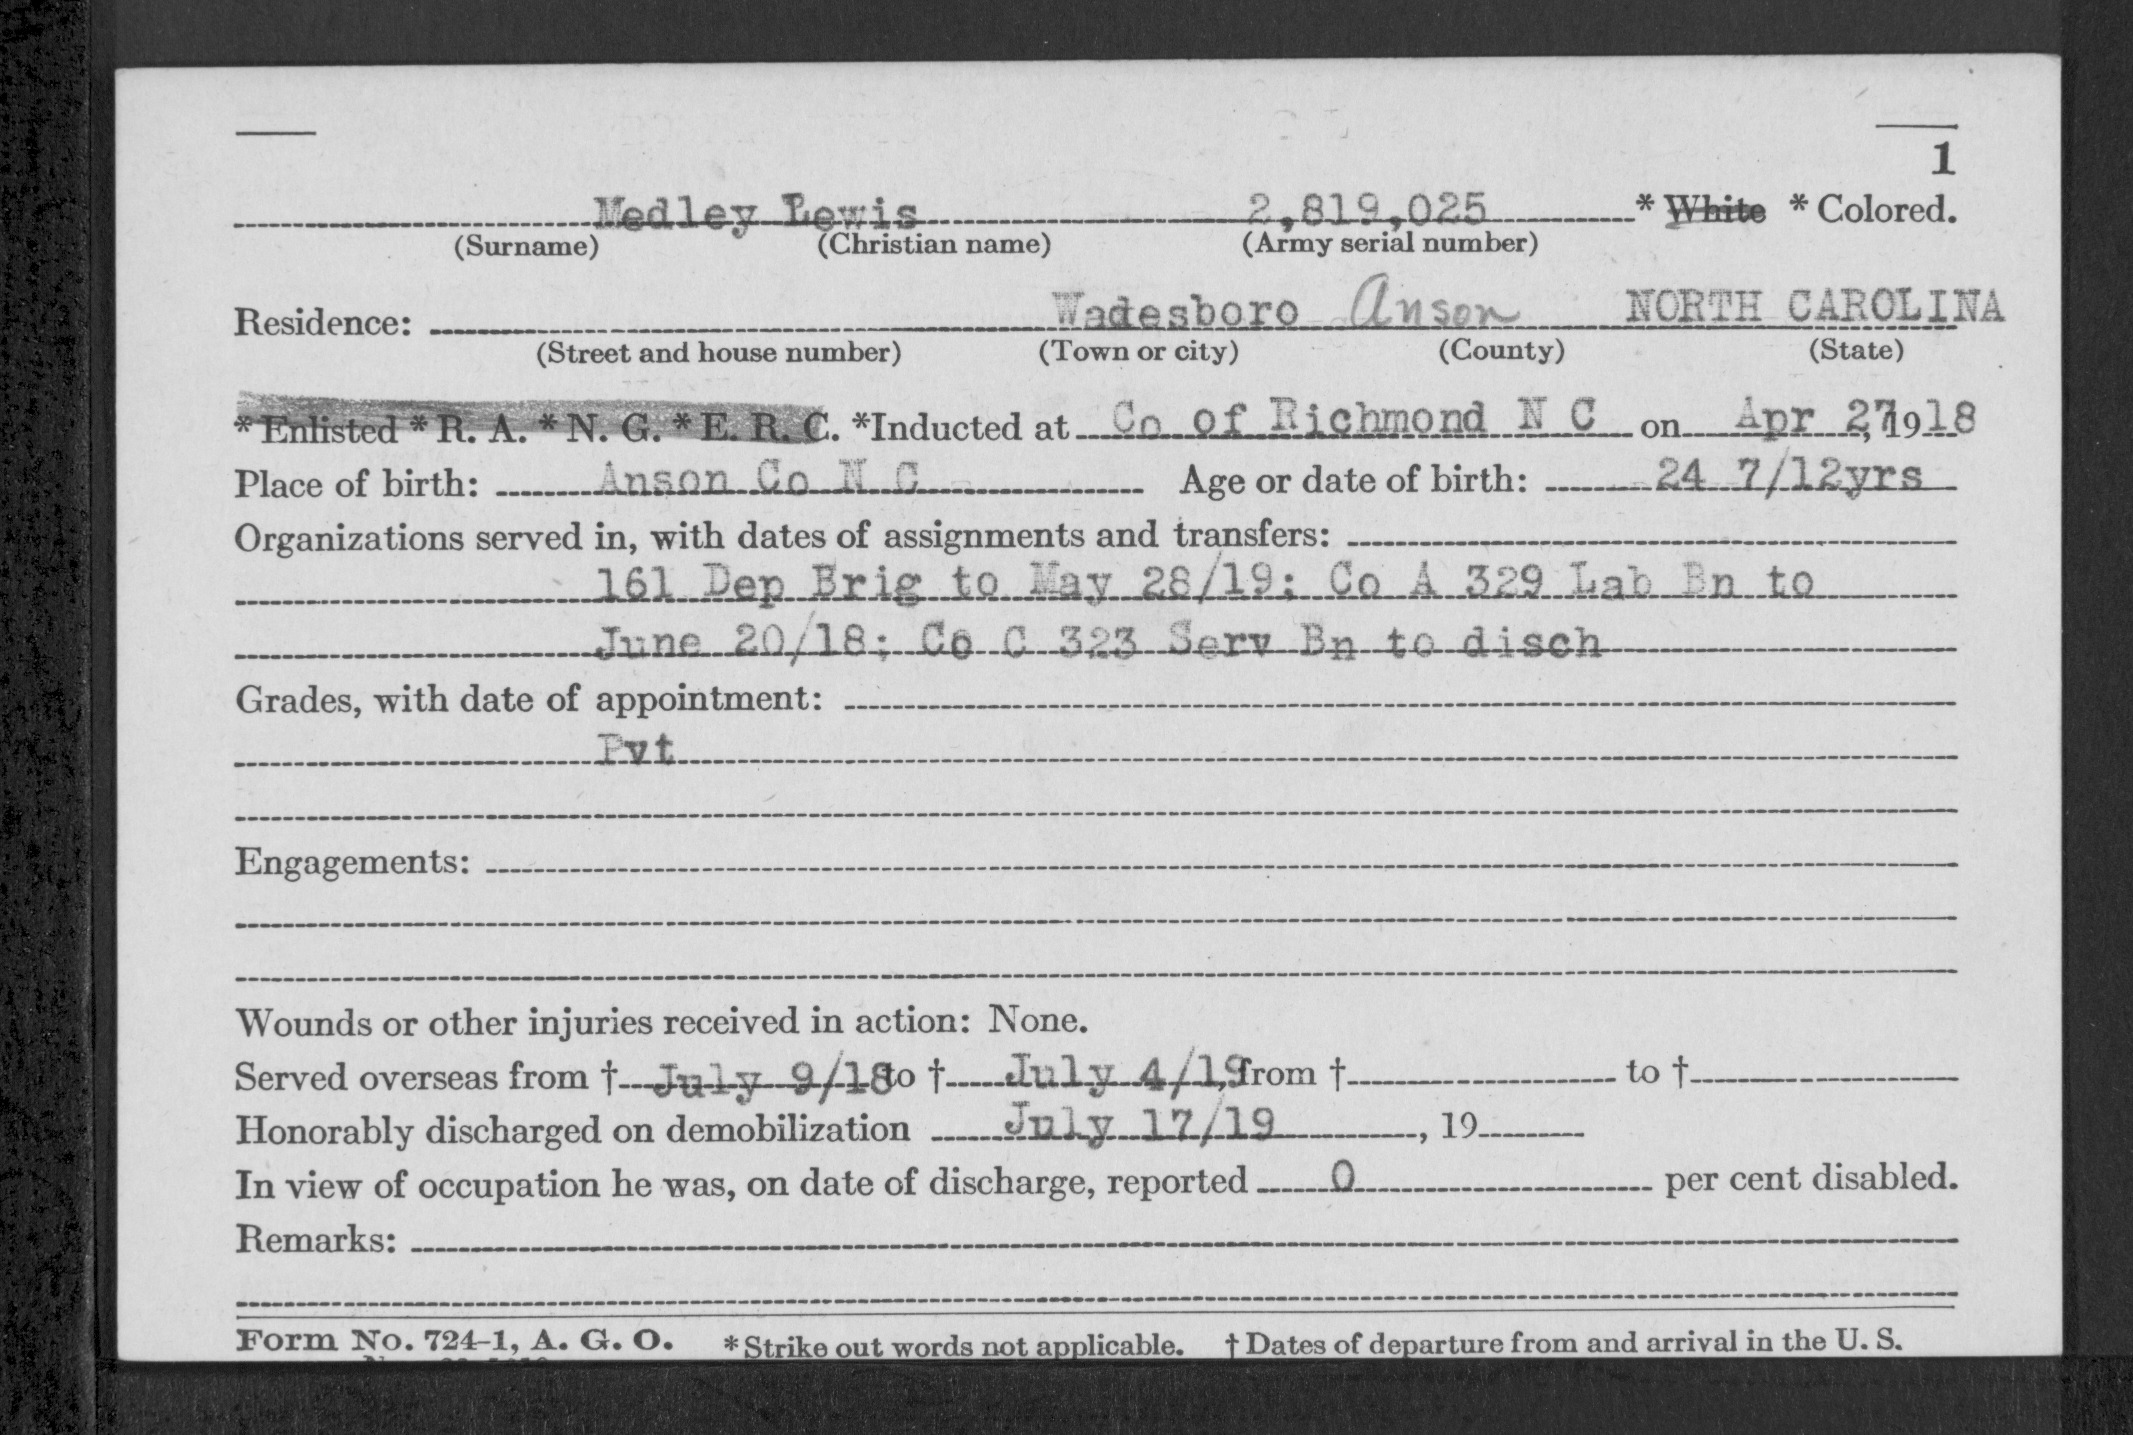 1
Medley Lewis 2,819,025 * White * Colored.
(Surname) (Christian name) (Army serial number)
Residence: Wadesboro Anson NORTH CAROLINA
(Street and house number) (Town or city) (County) (State)
* Enlisted * R. A. * N. G. * E. R. C. *Inducted at Co of Richmond N C on Apr 27, 1918
Place of birth: Anson Co N C Age or date of birth: 24 7/12yrs
Organizations served in, with dates of assignments and transfers:
161 Dep Brig to May 28/19; Co A 329 Lab Bn to
June 20/18; Co C 323 Serv Bn to disch
Grades, with date of appointment:
Pvt
Engagements:
Wounds or other injuries received in action: None.
Served overseas from † July 9/18 to † July 4/19, from † to †
Honorably discharged on demobilization July 17/19, 19
In view of occupation he was, on date of discharge, reported 0 per cent disabled.
Remarks:
Form No. 724-1, A. G. O. * Strike out words not applicable. † Dates of departure from and arrival in the U. S.